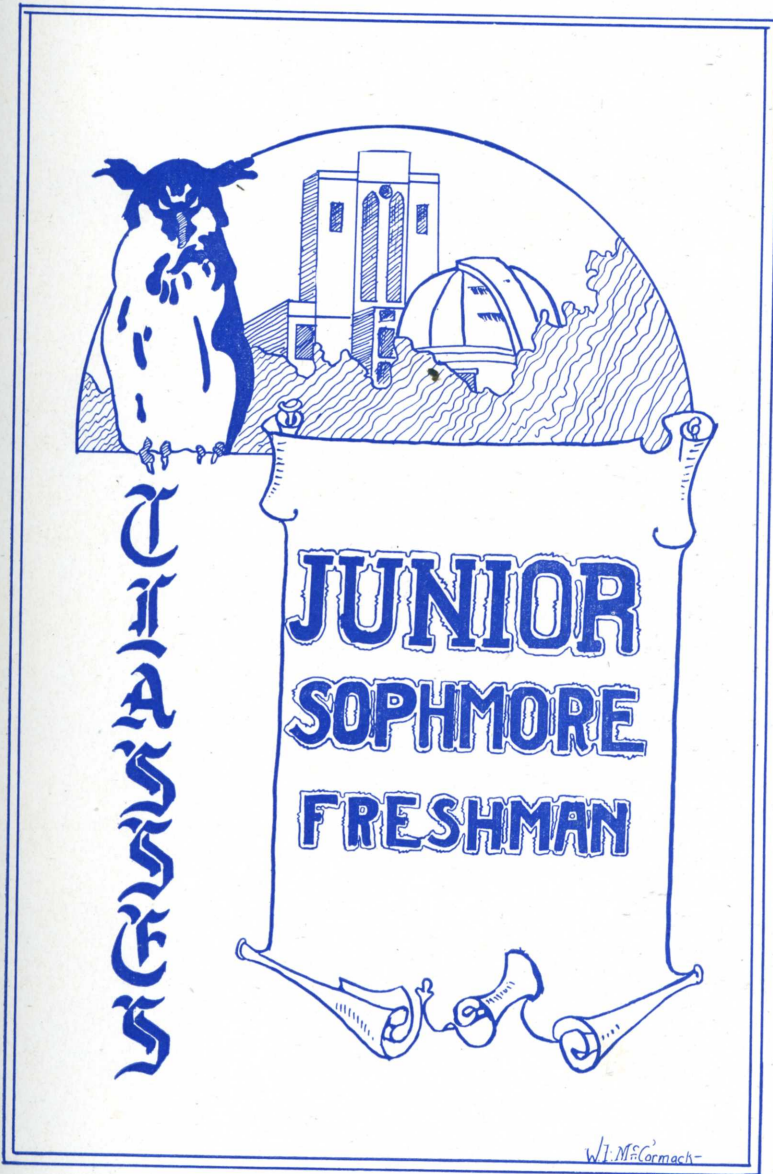 CLASSES
JUNIOR
SOPHMORE
FRESHMAN
W.J. McCormack-